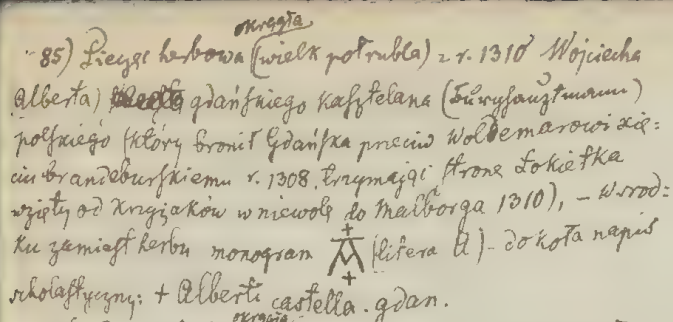 okrągła
85) Pieczęć herbowa (wielk. półrubla) z r. 1310 Wojciecha
Alberta) gdańskiego kasztelana (Burghauptmann)
polskiego (który bronił Gdańska przeciw Woldemarowi xię:
ciu brandeburskiemu r. 1308. trzymając stronę Łokietka
wzięty od krzyżaków w niewolę do Malborga 1310), – w środ:
ku zamiast herbu monogram (litera A) – dokoła napis
scholastyczny: + Alberti castella. gdan.
okrągła